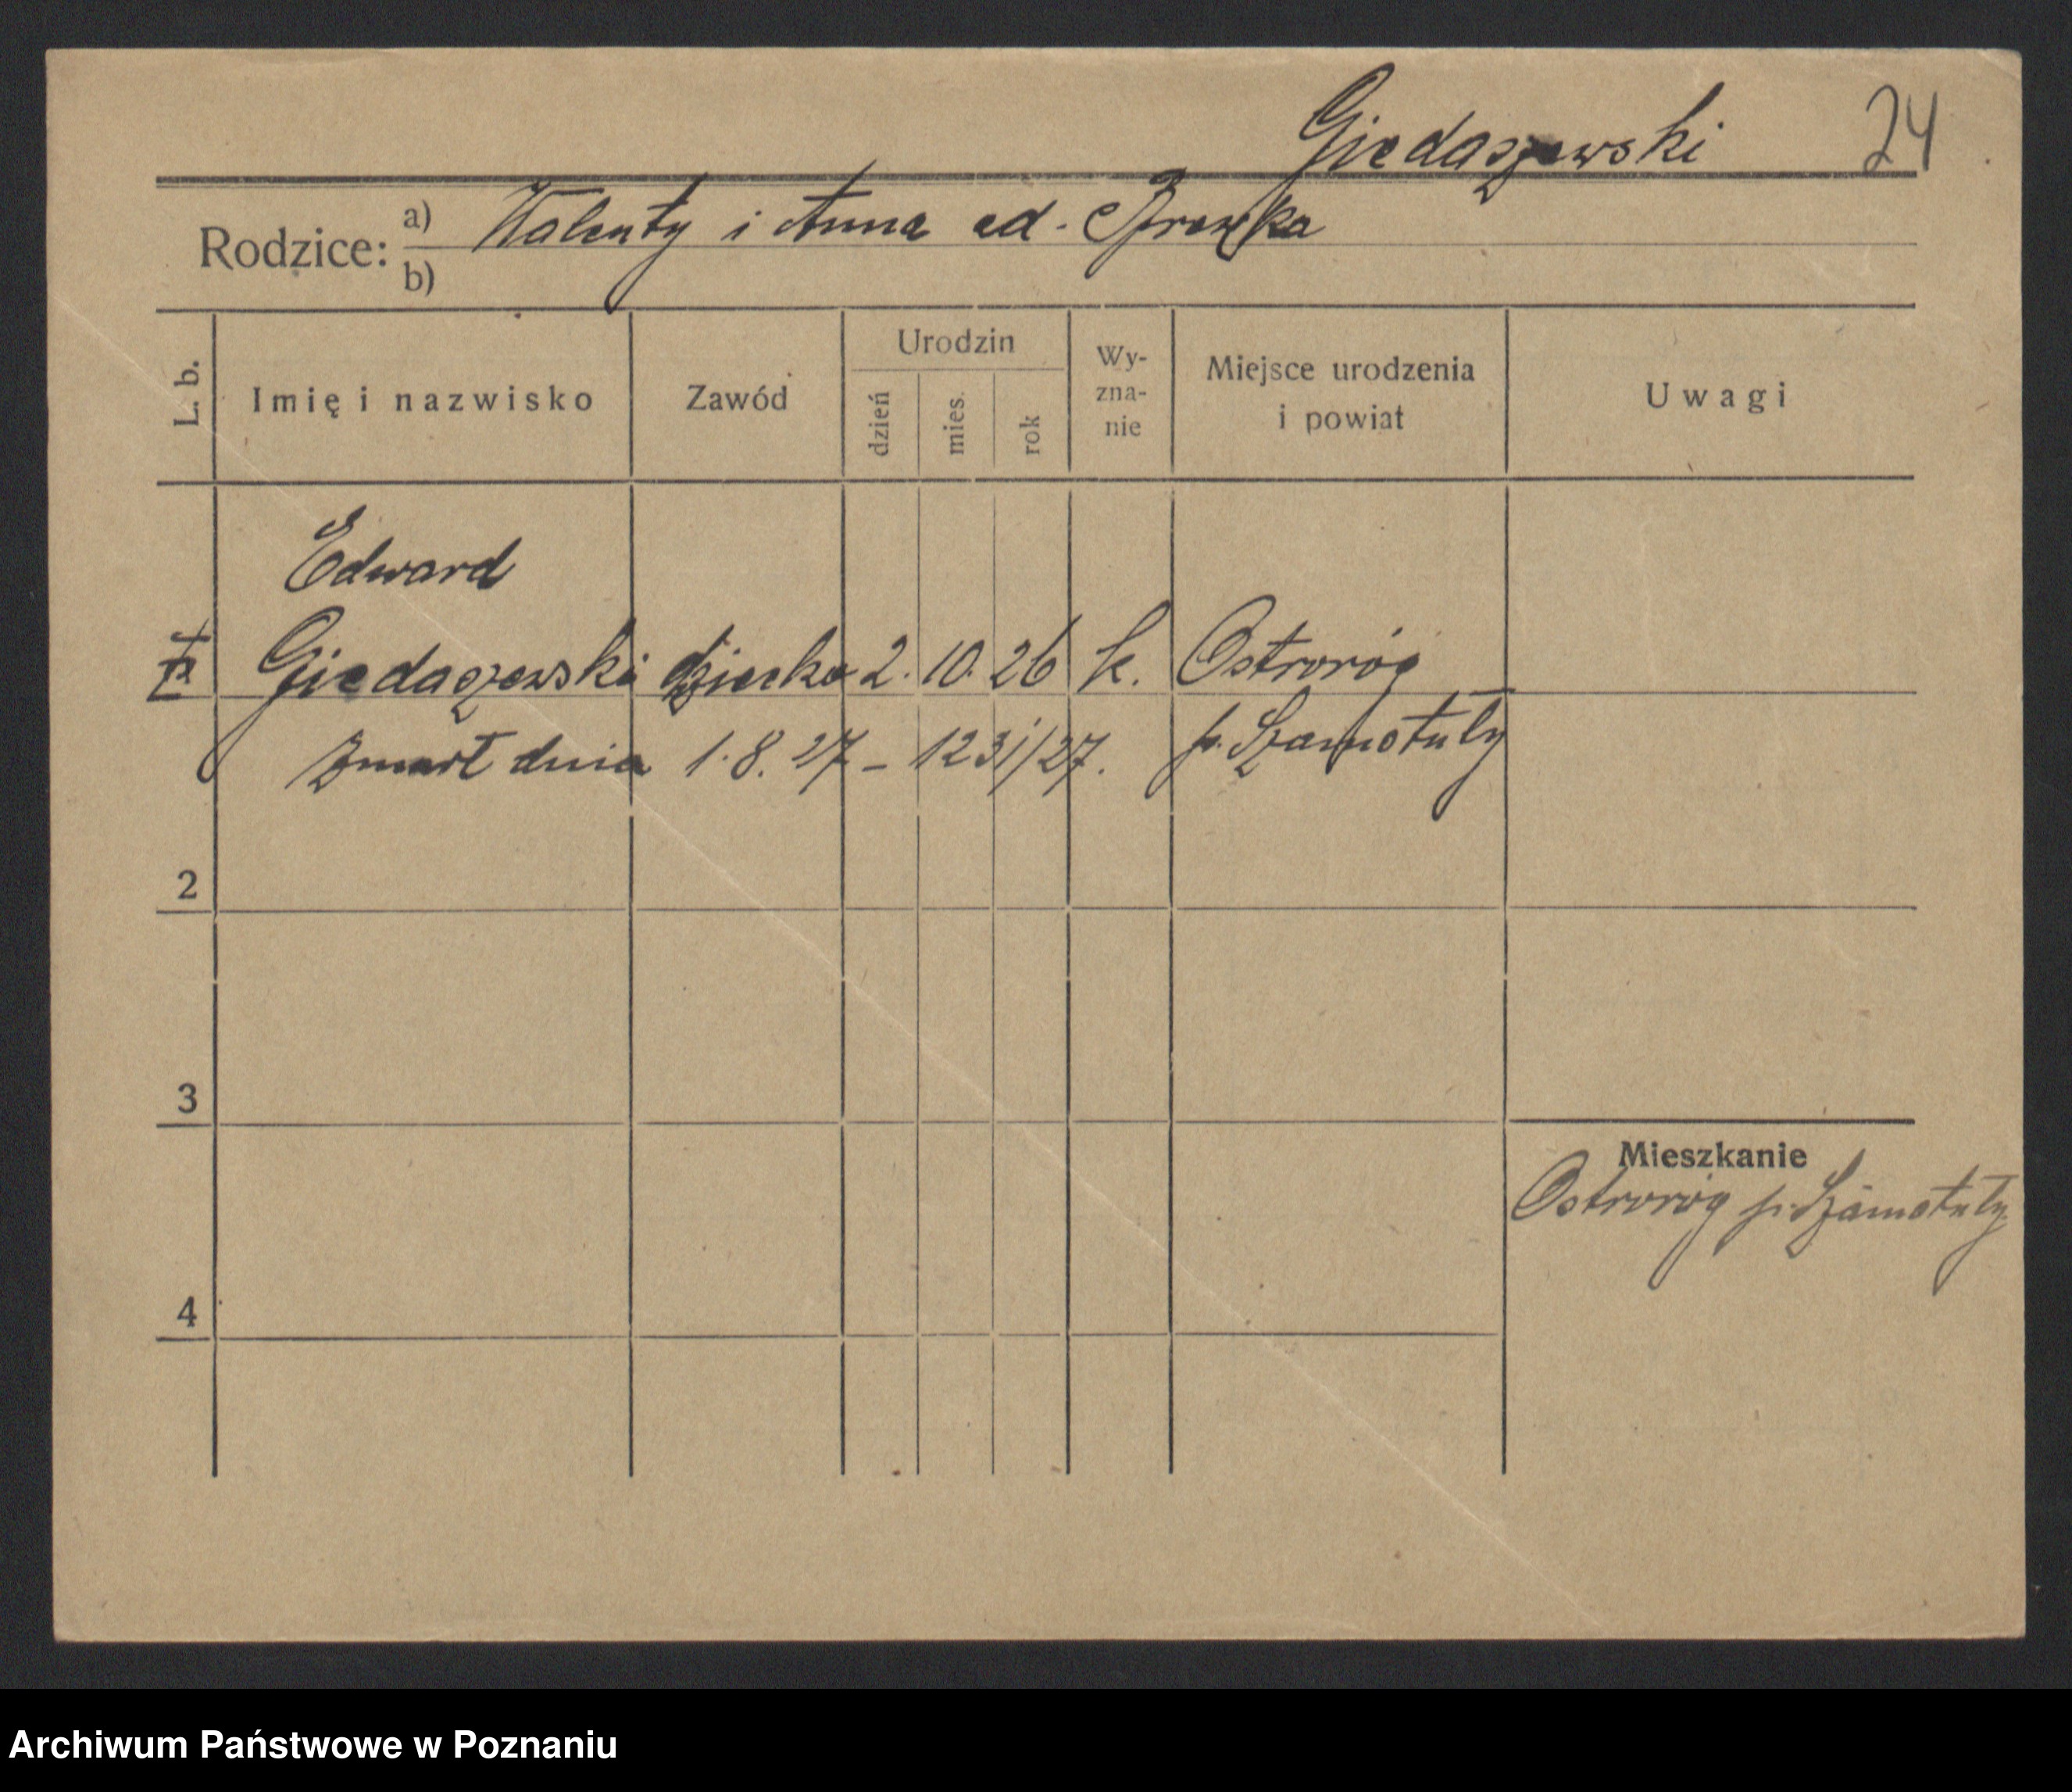 Giedaszewski 24
Rodzice: a) Walenty i Anna ad.
b)
L. b. Imię i nazwisko Zawód Urodzin dzień mies. rok Wy-zna-nie Miejsce urodzenia i powiat Uwagi
Edward
Giedaszewski dziecko 2. 10. 26 k. Ostroróg
zmarł dnia 1. 8. 27 – 1231/27. p. Szamotuły
2
3
Mieszkanie
Ostroróg p. Szamotuły
4
Archiwum Państwowe w Poznaniu